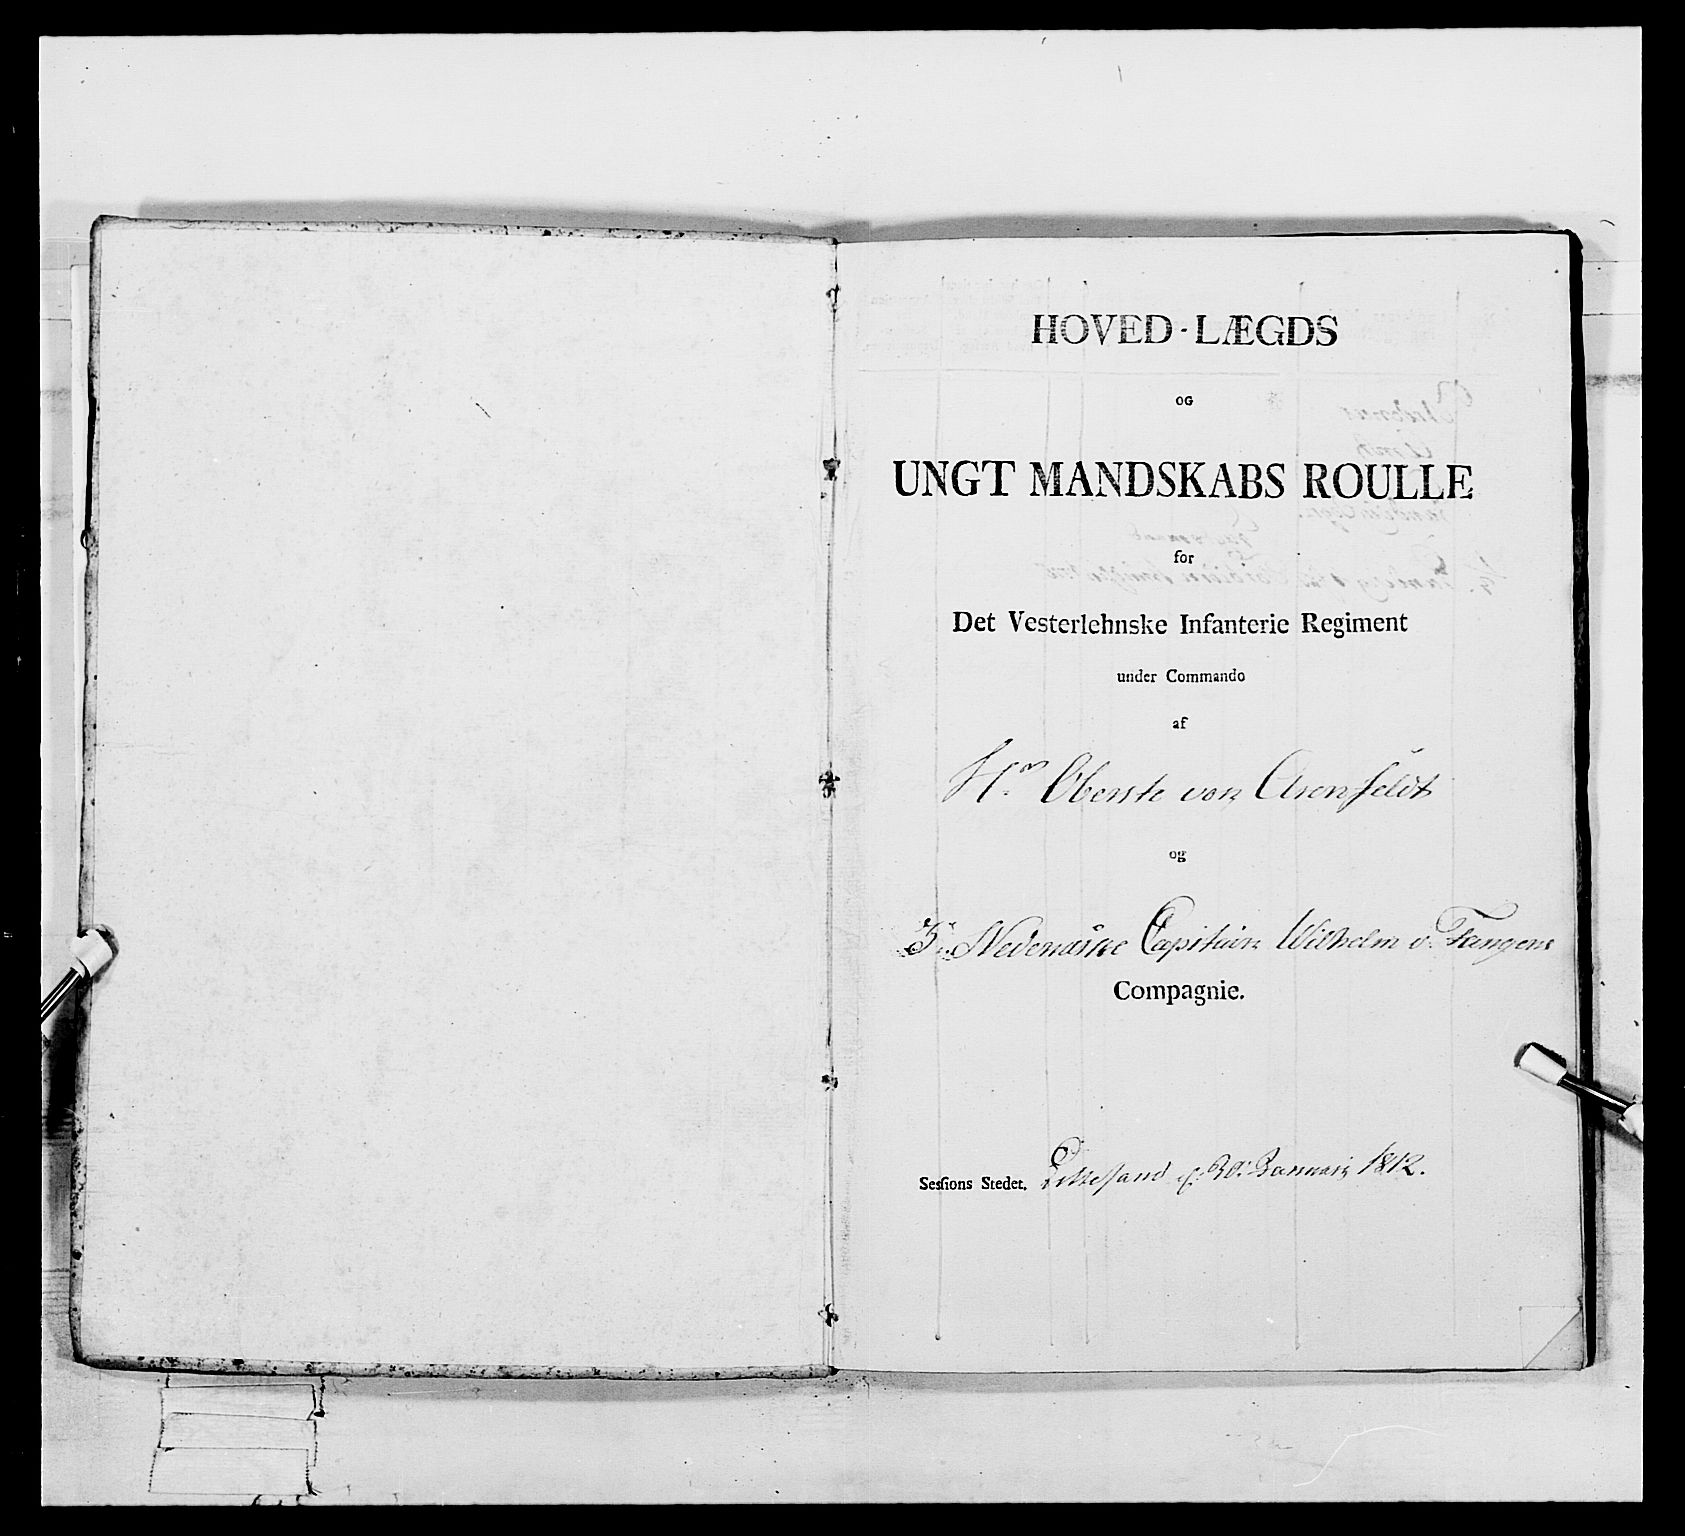 HOVED-LÆGDS
OG
UNGT MANDSKABS ROULLE
for
Det Vesterlehnske Infanterie Regiment
under Commando
af
Hr. Oberste von Arenfeldt
og
3. Nedenæske Capitain Wilhelm v. Tangens
Compagnie.
Sessions Stedet. Lillesand d. 30. Januari 1812.